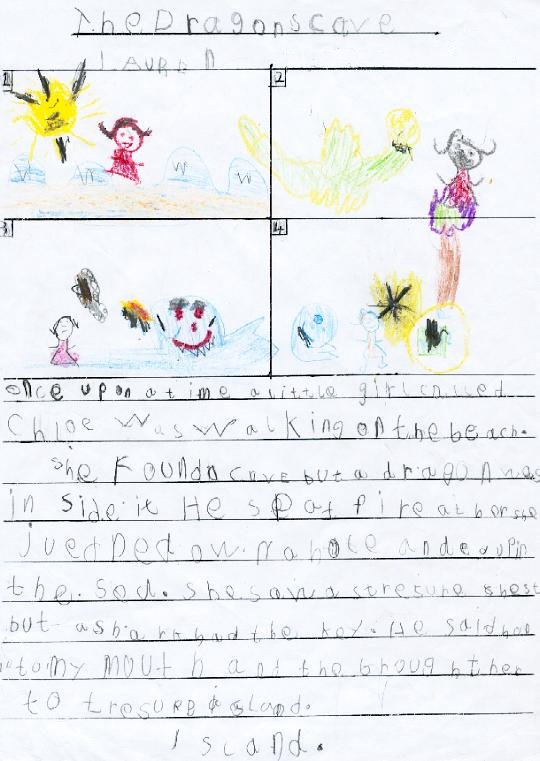 The Dragons cave
LAUREN
1
2
W W W W
3
4
once upon a time a little girl called
Chloe was walking on the beach.
she Found a cave but a dragon was
in side it He spat fire at her she
down a hole and
the. sea. she saw a tresure shest
but a shark had the key. He said
to my MOUth and the brought her
to tresure island.
Iscand.